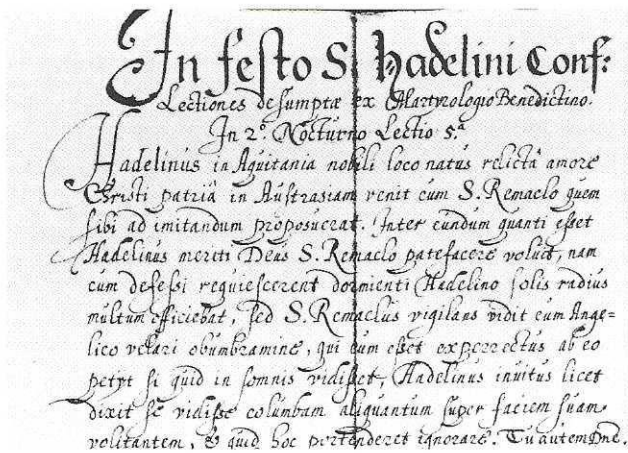 In festo S. Hadelini Conf:
Lectiones desumptæ ex Martyrologio Benedictino.
In 2º. Nocturno Lectio 5.ª
Hadelinus in Aquitania nobili loco natus relictâ amore
Christi patriâ in Austrasiam venit cum S. Remaclo quem
sibi ad imitandum proposuerat. Inter eundum quanti esset
Hadelinus meriti Deus S. Remaclo patefacere voluit, nam
cum defessi requiescerent dormienti Hadelino solis radius
multum officiebat, sed S. Remaclus vigilans vidit eum Ange=
lico velari obumbramine, qui cum esset experrectus ab eo
petyt si quid in somnis vidisset, Hadelinus invitus licet
dixit se vidisse columbam aliquantum super faciem suam
volitantem, & quid hoc portenderet ignorare. Tu autem Dne.